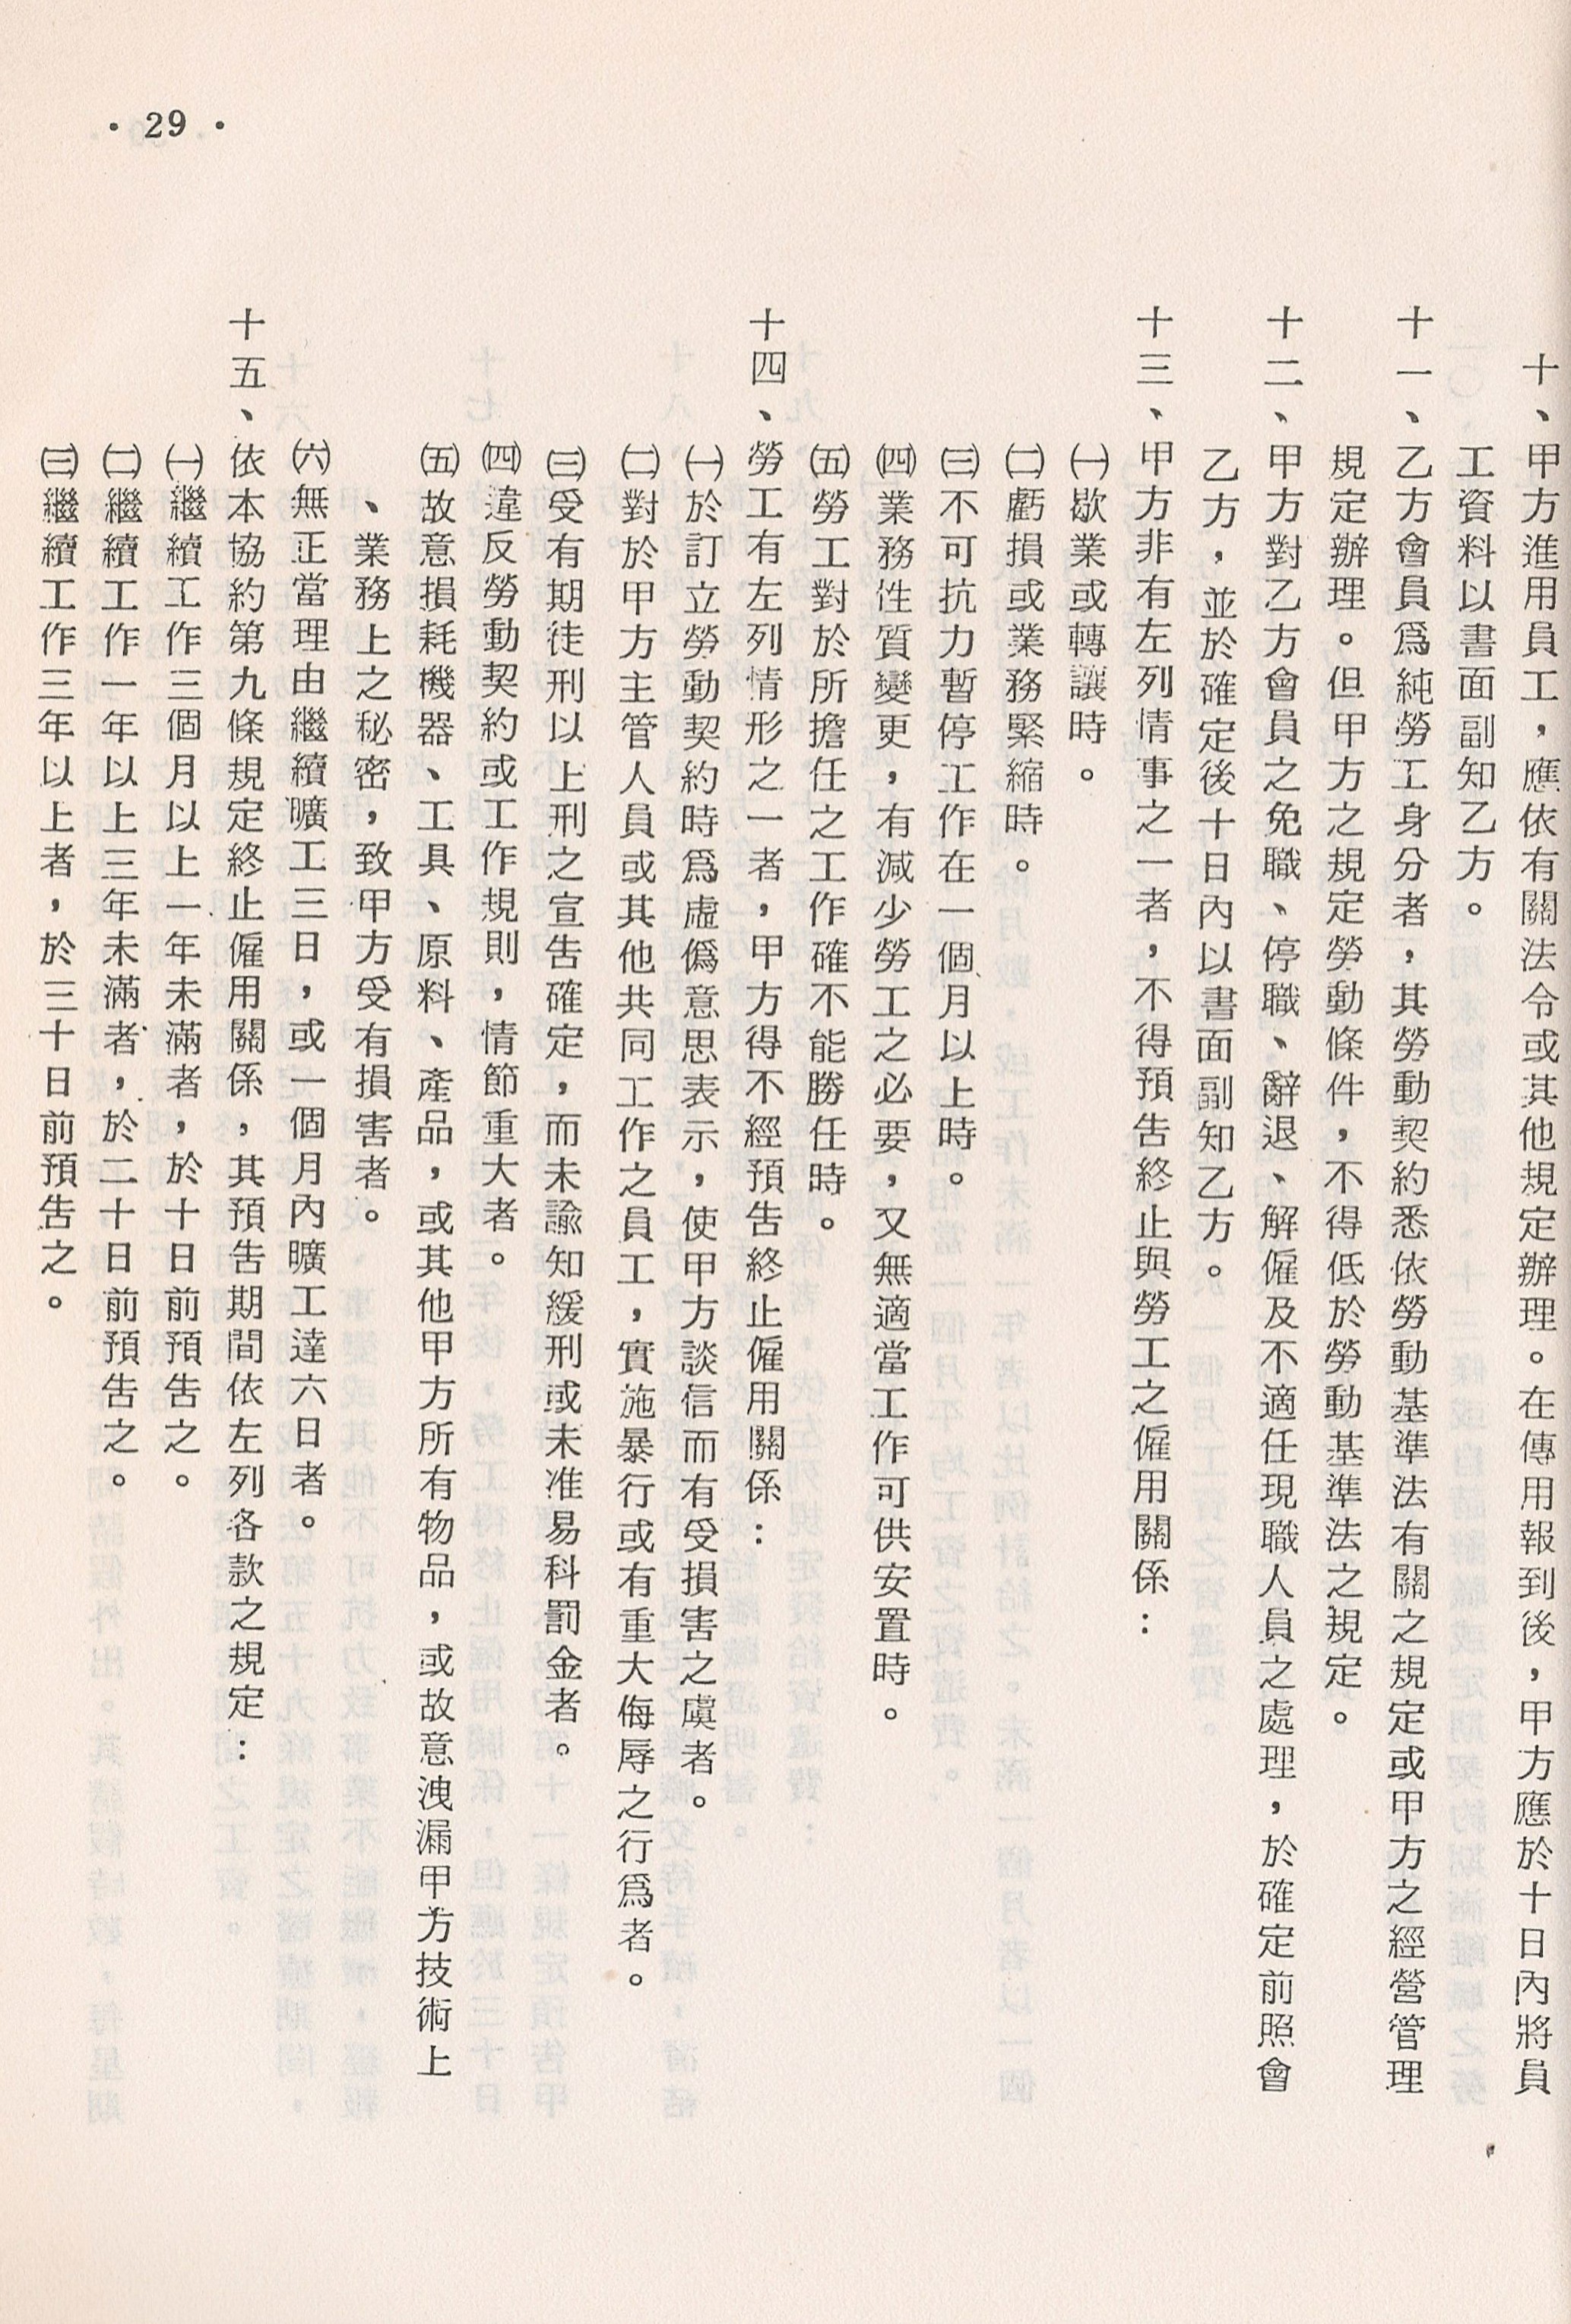 • 29 •
十、甲方進用員工，應依有關法令或其他規定辦理。在傳用報到後，甲方應於十日內將員
工資料以書面副知乙方。
十一、乙方會員爲純勞工身分者，其勞動契約悉依勞動基準法有關之規定或甲方之經營管理
規定辦理。但甲方之規定勞動條件，不得低於勞動基準法之規定。
十二、甲方對乙方會員之免職、停職、辭退、解僱及不適任現職人員之處理，於確定前照會
乙方，並於確定後十日內以書面副知乙方。
十三、甲方非有左列情事之一者，不得預告終止與勞工之僱用關係：
㈠歇業或轉讓時。
㈡虧損或業務緊縮時。
㈢不可抗力暫停工作在一個月以上時。
㈣業務性質變更，有減少勞工之必要，又無適當工作可供安置時。
㈤勞工對於所擔任之工作確不能勝任時。
十四、勞工有左列情形之一者，甲方得不經預告終止僱用關係：
㈠於訂立勞動契約時爲虛僞意思表示，使甲方談信而有受損害之虞者。
㈡對於甲方主管人員或其他共同工作之員工，實施暴行或有重大侮辱之行爲者。
㈢受有期徒刑以上刑之宣告確定，而未諭知緩刑或未准易科罰金者。
㈣違反勞動契約或工作規則，情節重大者。
㈤故意損耗機器、工具、原料、產品，或其他甲方所有物品，或故意洩漏甲方技術上
、業務上之秘密，致甲方受有損害者。
㈥無正當理由繼續曠工三日，或一個月內曠工達六日者。
十五、依本協約第九條規定終止僱用關係，其預告期間依左列各款之規定：
㈠繼續工作三個月以上一年未滿者，於十日前預告之。
㈡繼續工作一年以上三年未滿者，於二十日前預告之。
㈢繼續工作三年以上者，於三十日前預告之。